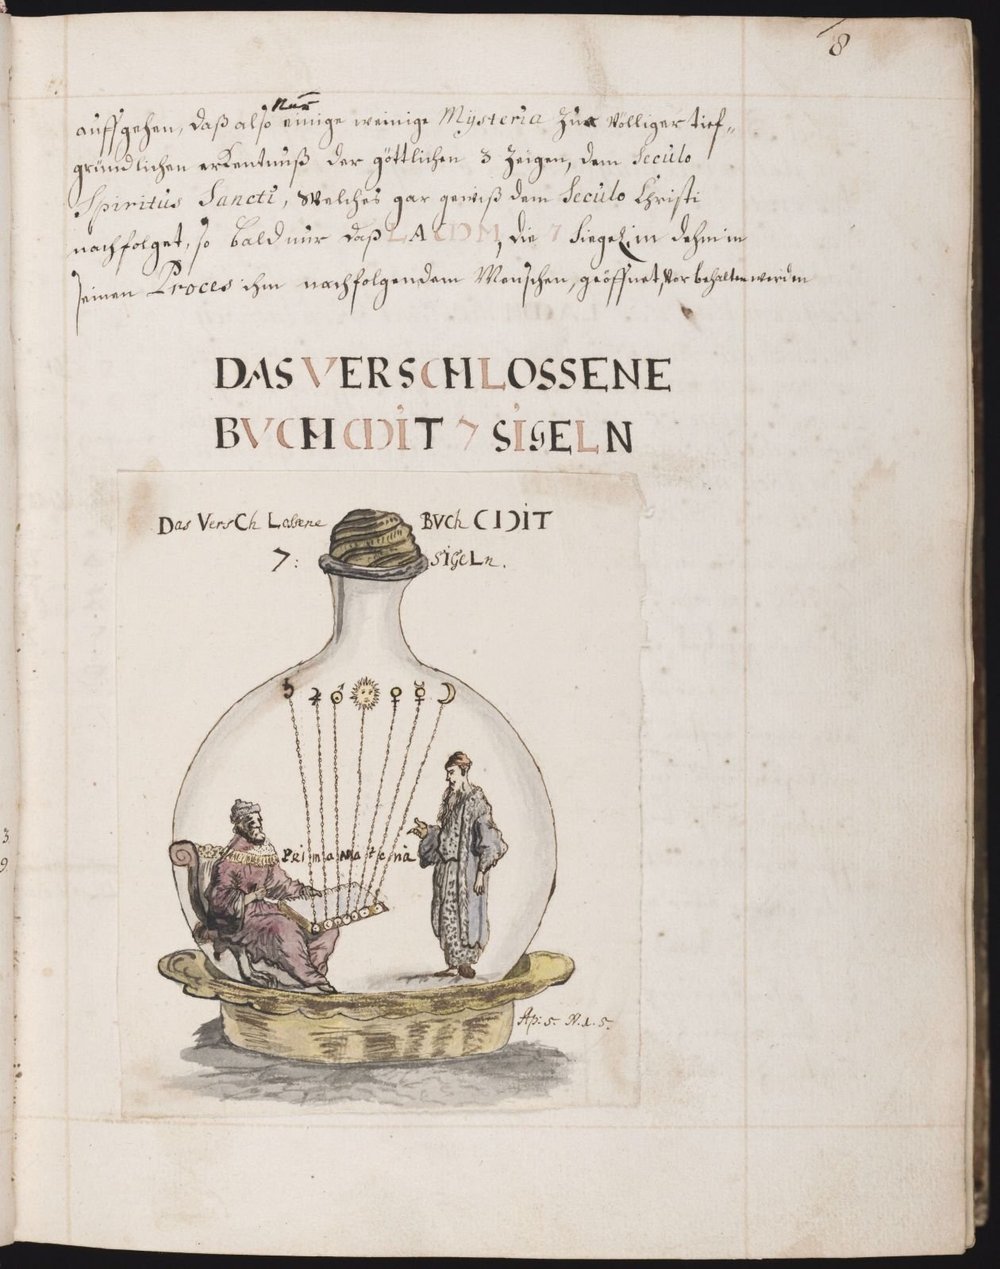 8
auffgehen, daß also Nur einige weinige Mysteria Zur völliger tief-
gründlichen erKentnuß der göttlichen 3 Zeigen, dem Seculo
Spiritus Sancti, Welches gar gewiß dem Seculo Christi
nachfolget, so bald nur daß die 7 Siegel, in dehm in
seinen Proces ihm nachfolgendem Menschen, geöffnet, Vorbehalten werden
DAS VERSCHLOSSENE
BVCH MIT 7 SIGELN
Das VersChLossene BVCh MIT
7: SIGeLn.
PrimaMateria
Ap: 5. N. 1. 5.